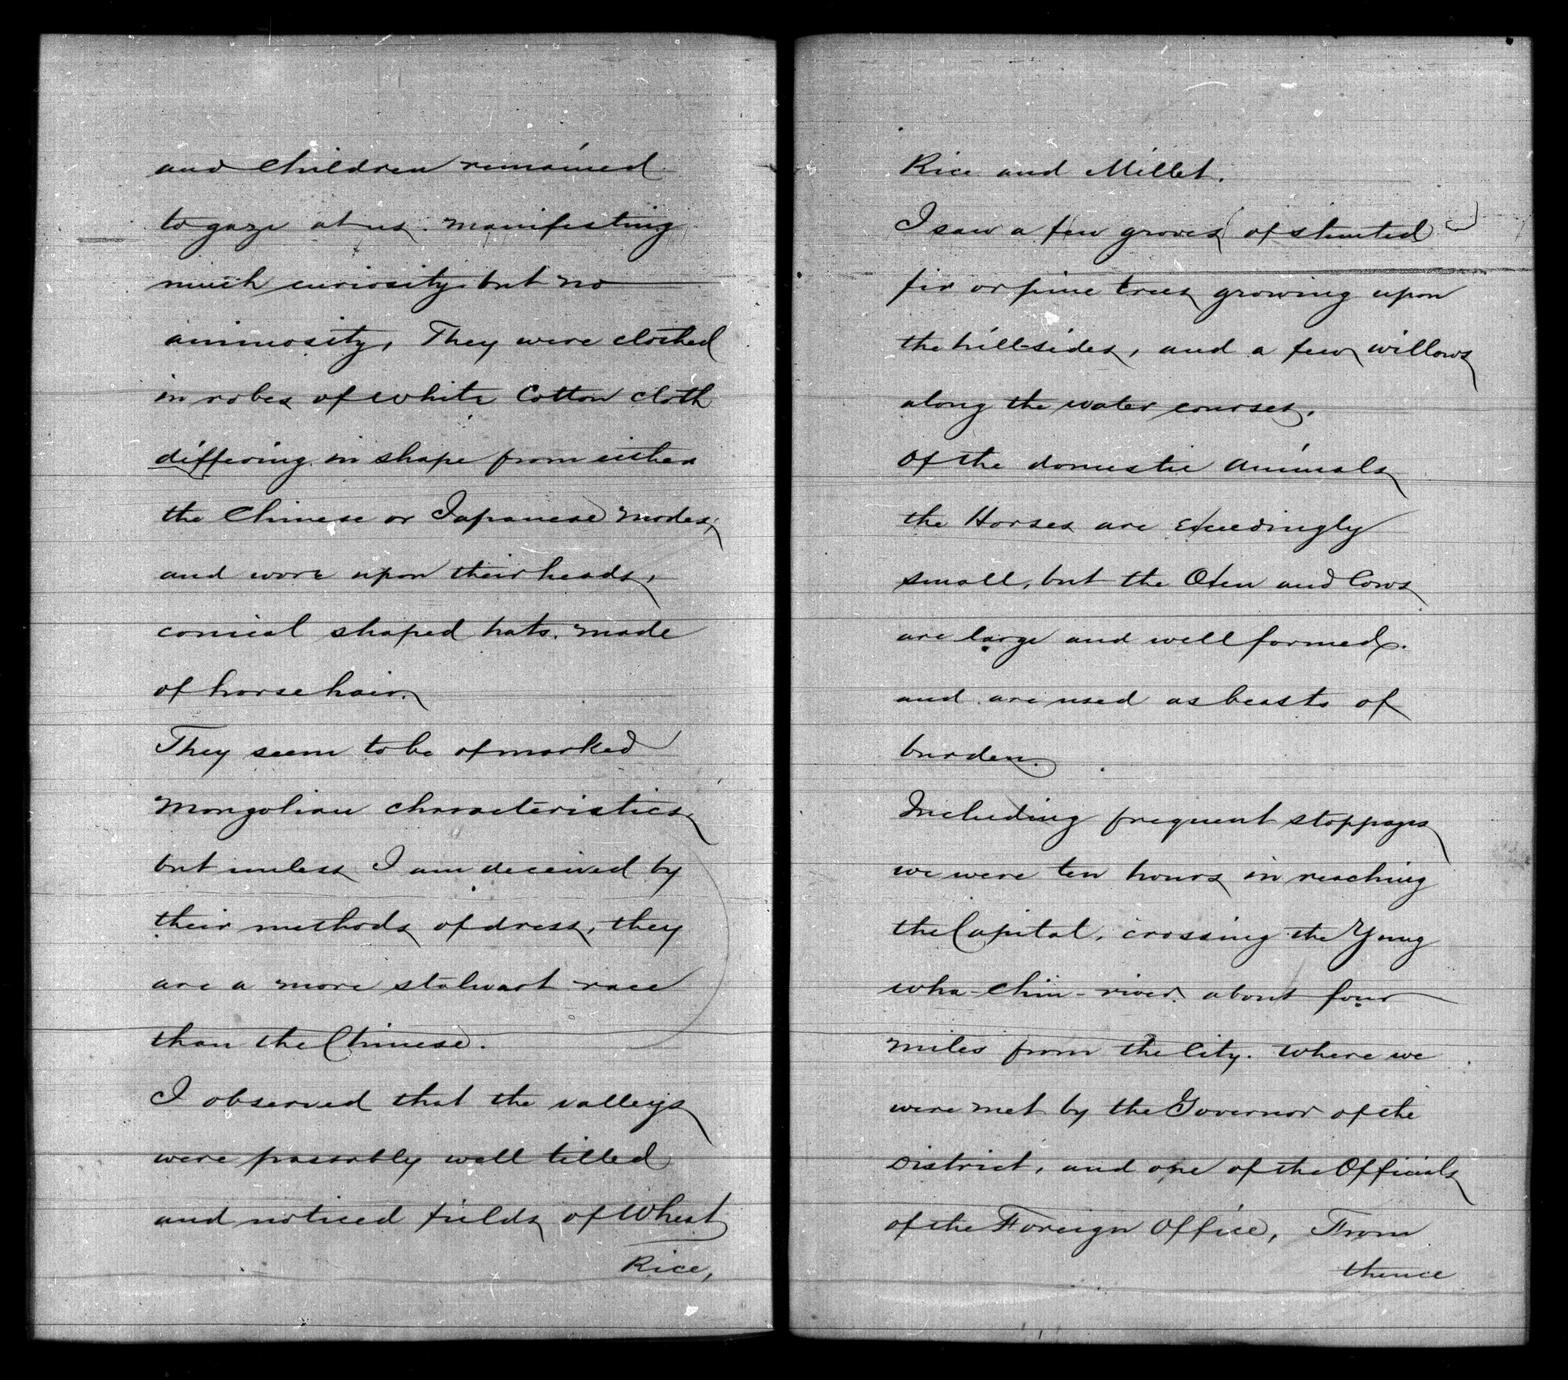 and children remained
to gaze at us. manifesting
much curiosity but no
animosity, They were clothed
in robes of white Cotton cloth
differing in shape from either
the Chinese or Japanese modes,
and wore upon their heads,
conical shaped hats. made
of horse hair.
They seem to be of marked
Mongolian characteristics,
but unless I am deceived by
their methods of dress, they
are a more stalwart race
than the Chinese.
I observed that the valleys
were passably well tilled
and noticed fields of Wheat
Rice,
Rice and Millet.
I saw a few groves of stunted
fir or pine trees growing upon
the hillsides, and a few willows
along the water courses.
Of the domestic animals
the Horses are exceedingly
small, but the Oxen and Cows
are large and well formed.
and are used as beasts of
burden.
Including frequent stoppages
we were ten hours in reaching
the Capital. crossing the Yang
wha-chin-river. about four
miles from the City. Where we
were met by the Governor of the
District, and one of the Officials
of the Foreign Office, From
thence